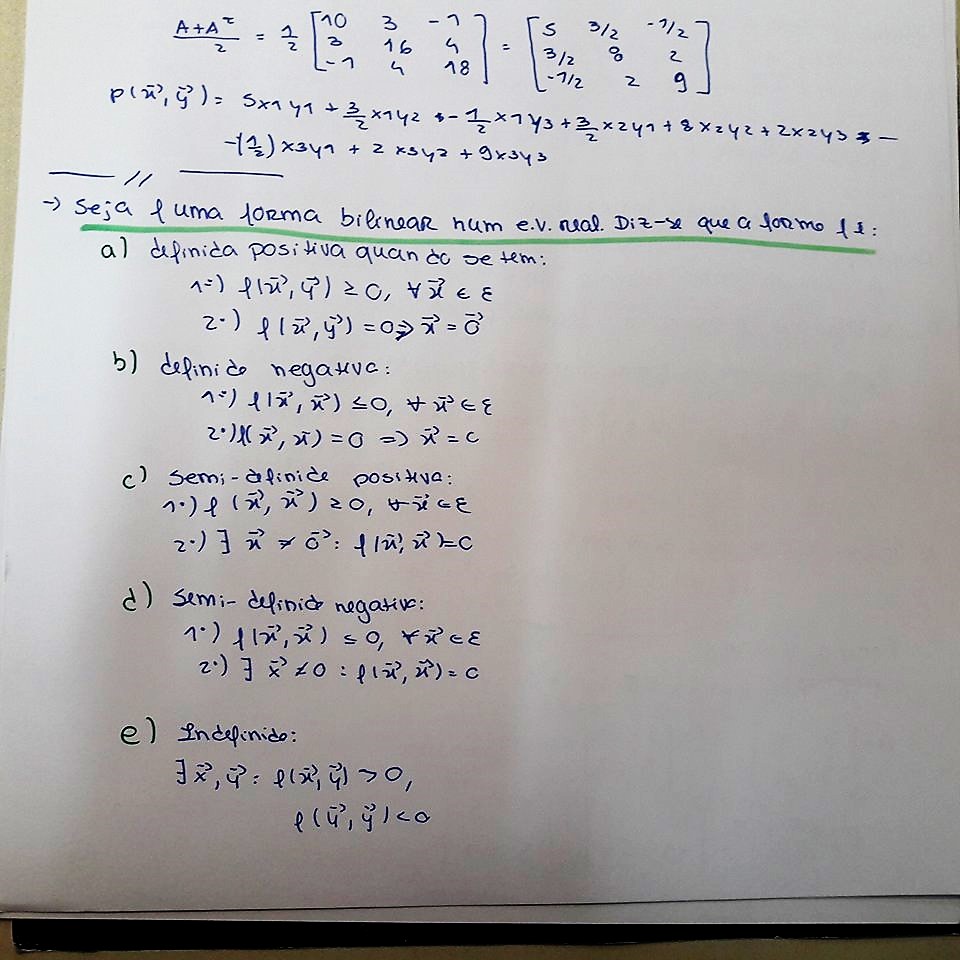 A+Aᵀ/2 = 1/2 [10 3 -1; 3 16 4; -1 4 18] = [5 3/2 -1/2; 3/2 8 2; -1/2 2 9]
p(x⃗, y⃗) = 5x1y1 + 3/2 x1y2 - 1/2 x1y3 + 3/2 x2y1 + 8x2y2 + 2x2y3 -
-(1/2) x3y1 + 2x3y2 + 9x3y3
//
→ Seja f uma forma bilinear num e.v. real. Diz-se que a forma f é:
a) definida positiva quando se tem:
1º) f(x⃗, y⃗) ≥ 0, ∀ x⃗ ∈ E
2º) f(x⃗, y⃗) = 0 => x⃗ = 0⃗
b) definida negativa:
1º) f(x⃗, x⃗) ≤ 0, ∀ x⃗ ∈ E
2º) f(x⃗, x⃗) = 0 => x⃗ = 0
c) Semi-definida positiva:
1º) f(x⃗, x⃗) ≥ 0, ∀ x⃗ ∈ E
2º) ∃ x⃗ ≠ 0⃗ : f(x⃗, x⃗) = 0
d) Semi-definida negativa:
1º) f(x⃗, x⃗) ≤ 0, ∀ x⃗ ∈ E
2º) ∃ x⃗ ≠ 0 : f(x⃗, x⃗) = 0
e) Indefinida:
∃ x⃗, y⃗ : f(x⃗, y⃗) > 0,
f(y⃗, y⃗) < 0